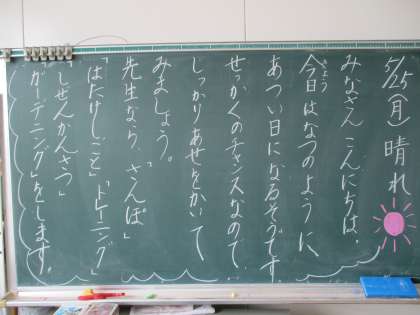 5/25(月) 晴れ
みなさん こんにちは。
今日はなつのように、
きょう
あつい日になるそうです。
せっかくのチャンスなので、
しっかりあせをかいて
みましょう。
先生なら、「さんぽ」
「はたけしごと」「トレーニング」
「しぜんかんさつ」
「ガーデニング」をします。